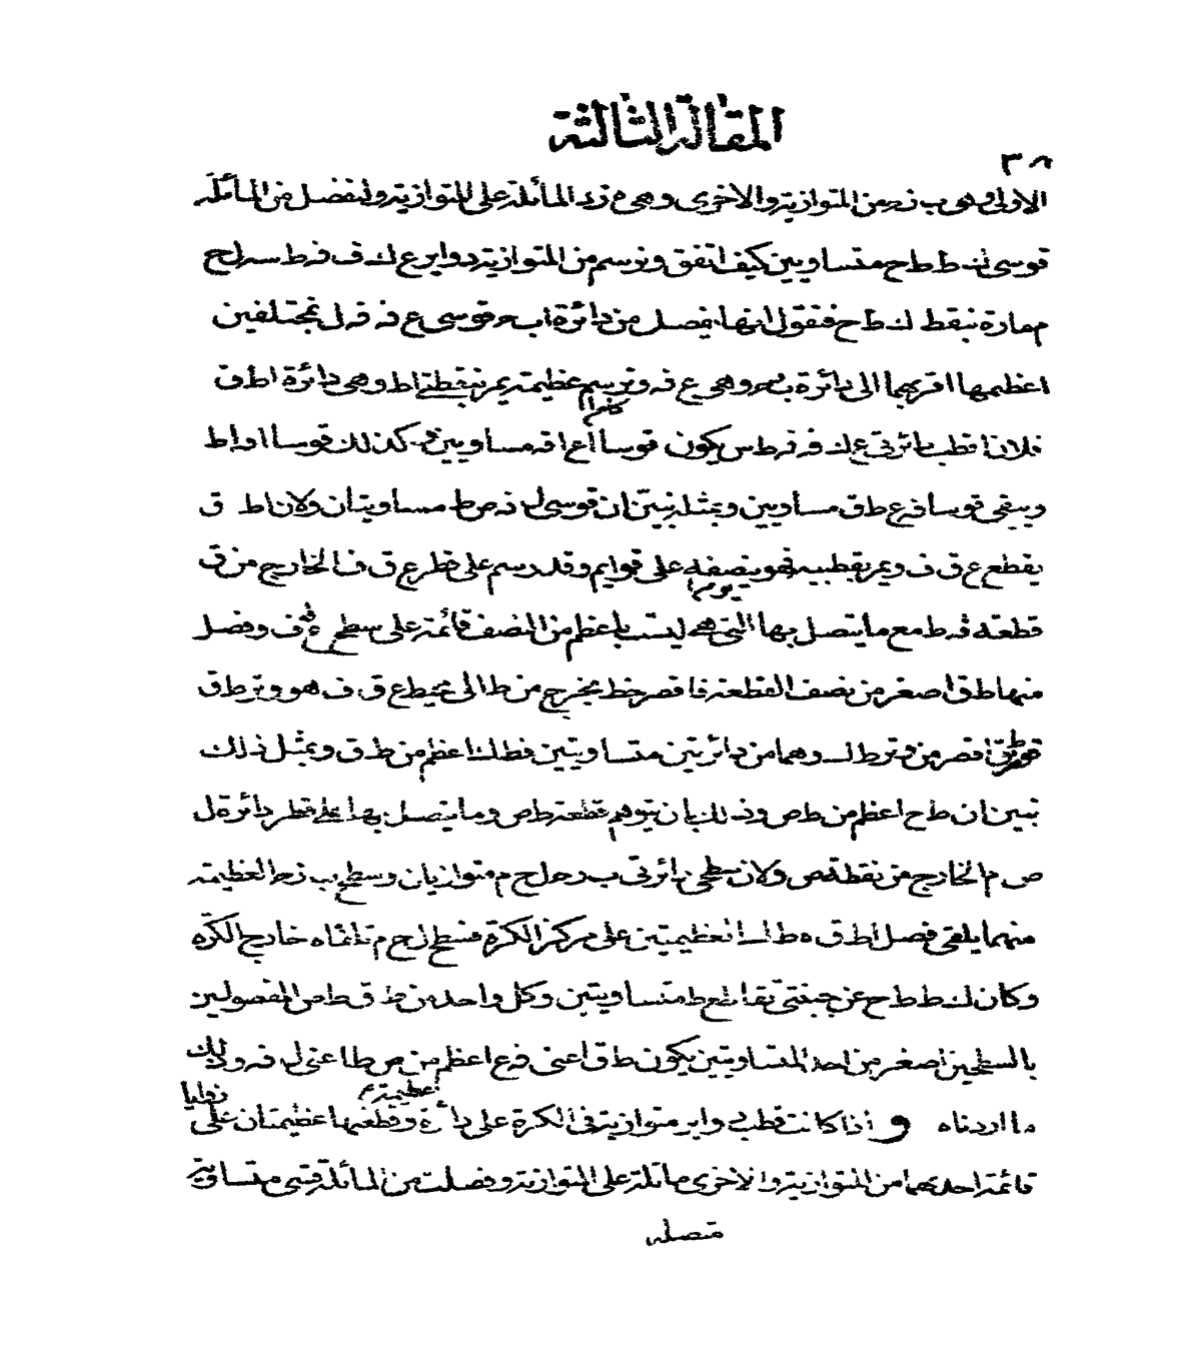 المقالة الثالثة
٣٨
الاولى وهى ب ز ح من المتوازية والاخرى وهى ه ز د المائلة على المتوازية ولنفصل من المائلة
قوسى ك ط ط ح متساويين كيف اتفق ونرسم من المتوازية دواير ع ك ف ف ط س ل ح
م مارة بنقط ك ط ح فنقول انها يفصل من دائرة اب ح قوسى ع ف ف ل مختلفين
اعظمهما اقربهما الى دائرة ب ح وهى ع ف ونرسم عظيمة يمر بنقطتى ا ط وهى دائرة ا ط ق
فلان ا قطب دائرتى ع ك ف ف ط س يكون قوسا ا ع ا ف مساويين وكذلك قوسا ا ق ا ط
ويبقى قوسا ف ع ط ق مساويين وبمثله نبين ان قوسى ل ف ص ط مساويتان ولان ا ط ق
يقطع ع ق ف ويمر بقطبيه فهو ينصفه على قوايم وقد رسم على قطر ع ق ف الخارج من ق
قطعة ق ط مع ما يتصل بها التى هى ليست باعظم من النصف قائمة على سطح ع ق ف وفصل
منها ط ق اصغر من نصف القطعة فاقصر خط يخرج من ط الى محيط ع ق ف هو وتر ط ق
اقصر من وتر ط ك وهما من دائرتين متساويتين فط ك اعظم من ط ق وبمثل ذلك
تبين ان ط ح اعظم من ط ص وذلك بان يتوهم قطعة ط ص وما يتصل بها على قطر دائرة ل
ص م الخارج من نقطة ص ولان سطحى دائرتى ب ز ح ل ح م متوازيان وسطح ب ز ح العظيمة
منهما يلقى فصل ا ط ق ه ط ا العظيمتين على مركز الكرة فسطح ل ح م تلقاه خارج الكرة
وكان ك ط ط ح عن جنبتى تقاطع ط متساويتين وكل واحد من ط ق ط ص المفصولين
بالسطحين اصغر من احد المتساويتين يكون ط ق اعنى ف ع اعظم من ص ط اعنى ل ف وذلك
ما اردناه و اذا كانت قطب دواير متوازية فى الكرة على دائرة عظيمة وقطعها عظيمتان على زوايا
قائمة احدهما من المتوازية والاخرى مائلة على المتوازية وفصلت من المائلة قسى متساوية
متصلة